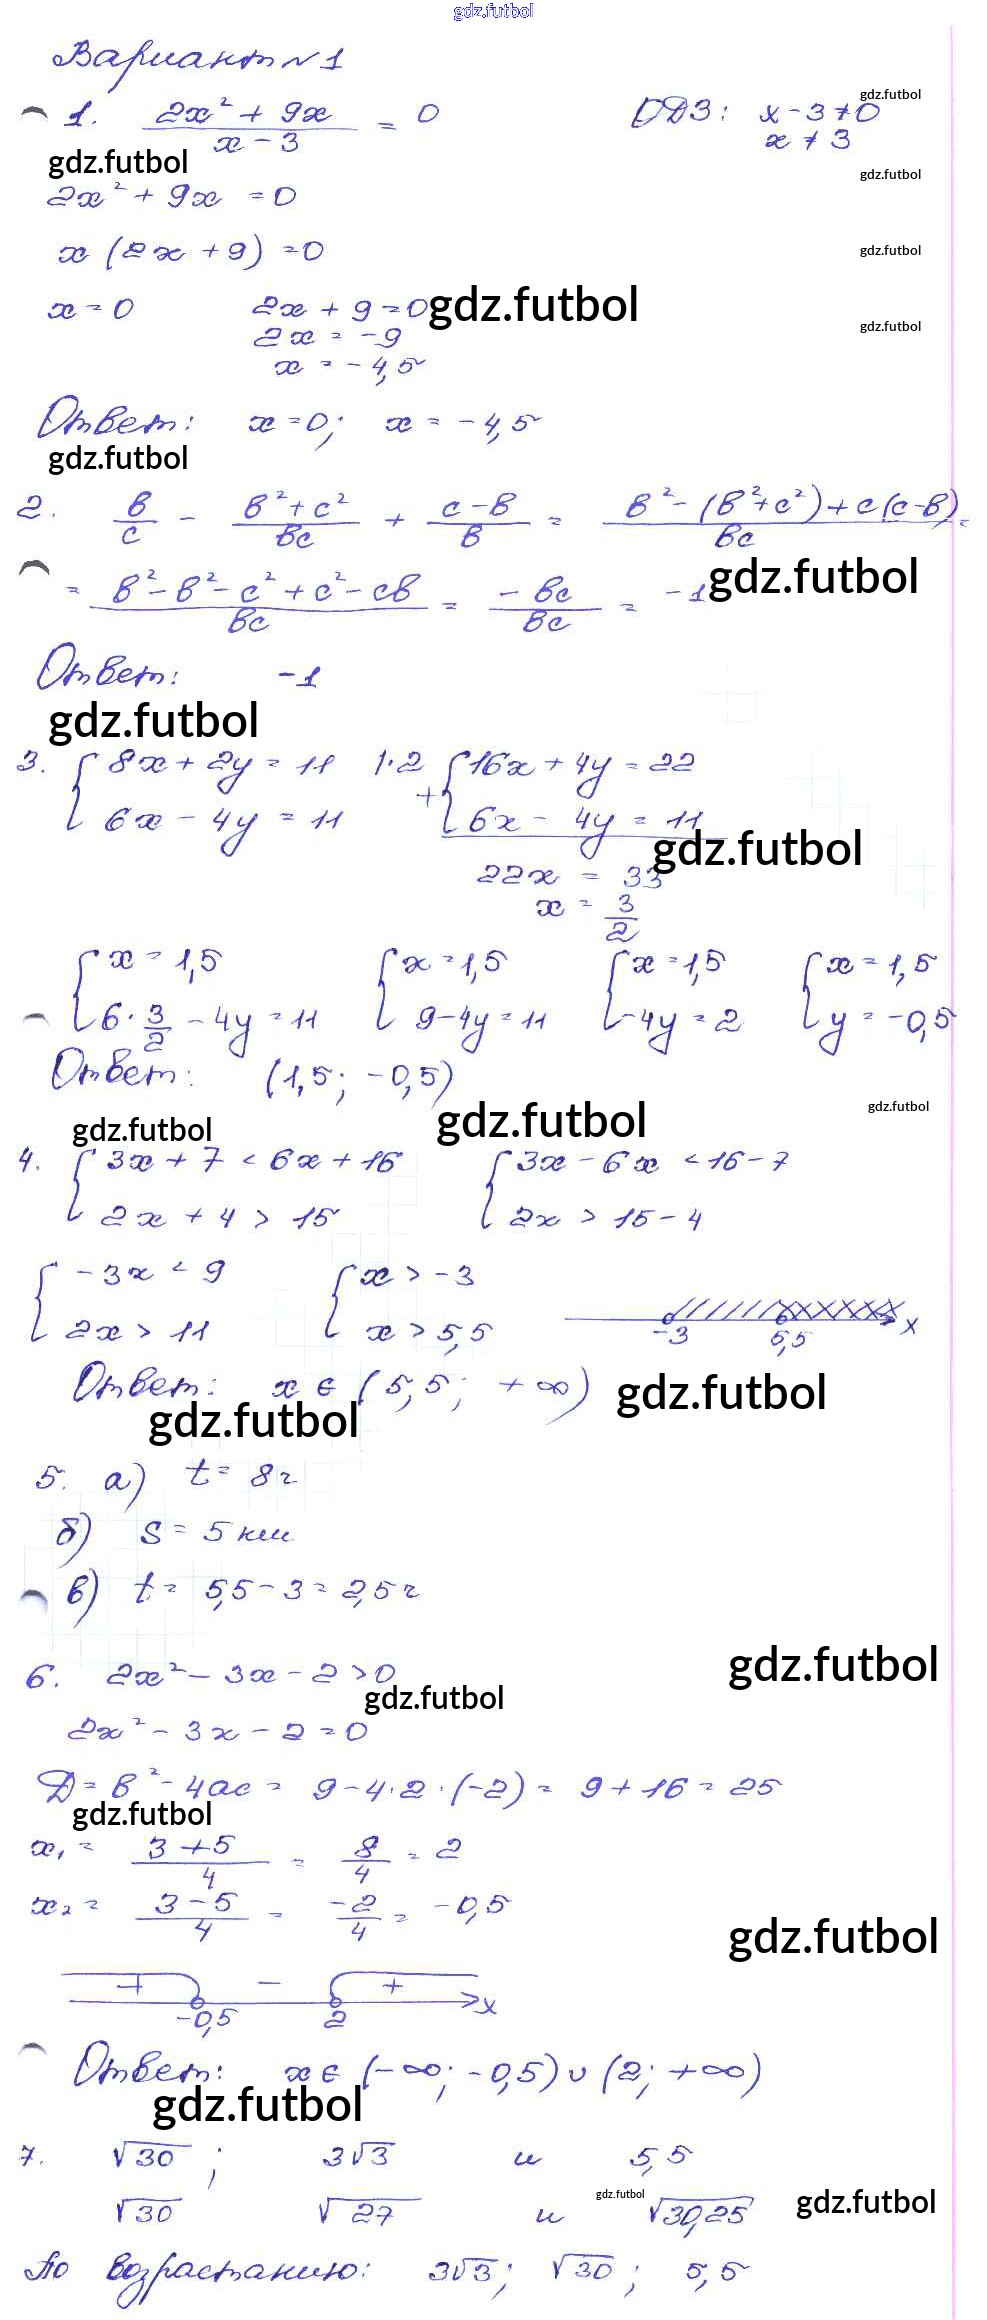 gdz.futbol
Вариант №1
1. (2x² + 9x)/(x - 3) = 0 ОДЗ: x - 3 ≠ 0
x ≠ 3
gdz.futbol
gdz.futbol
gdz.futbol
2x² + 9x = 0
x (2x + 9) = 0
gdz.futbol
x = 0 2x + 9 = 0
gdz.futbol
gdz.futbol
2x = -9
x = -4,5
Ответ: x = 0; x = -4,5
gdz.futbol
2. в/с - (в² + с²)/вс + (с - в)/в = (в² - (в² + с²) + с(с - в))/вс =
= (в² - в² - с² + с² - св)/вс = -вс/вс = -1
gdz.futbol
Ответ: -1
gdz.futbol
3. { 8x + 2y = 11 |·2 + { 16x + 4y = 22
6x - 4y = 11 6x - 4y = 11
gdz.futbol
22x = 33
x = 3/2
{ x = 1,5 { x = 1,5 { x = 1,5 { x = 1,5
6 · 3/2 - 4y = 11 9 - 4y = 11 -4y = 2 y = -0,5
Ответ: (1,5; -0,5)
gdz.futbol
gdz.futbol
gdz.futbol
4. { 3x + 7 < 6x + 16 { 3x - 6x < 16 - 7
2x + 4 > 15 2x > 15 - 4
{ -3x < 9 { x > -3
2x > 11 x > 5,5
-3 5,5 x
Ответ: x ∈ (5,5; +∞)
gdz.futbol
gdz.futbol
5. а) t = 8 ч
б) S = 5 км
в) t = 5,5 - 3 = 2,5 ч
gdz.futbol
6. 2x² - 3x - 2 > 0
gdz.futbol
2x² - 3x - 2 = 0
Д = в² - 4ас = 9 - 4 · 2 · (-2) = 9 + 16 = 25
gdz.futbol
x₁ = (3 + 5)/4 = 8/4 = 2
x₂ = (3 - 5)/4 = -2/4 = -0,5
gdz.futbol
+ - +
-0,5 2 x
Ответ: x ∈ (-∞; -0,5) ∪ (2; +∞)
gdz.futbol
7. √30 ; 3√3 и 5,5
√30 √27 и √30,25
gdz.futbol
gdz.futbol
По возрастанию: 3√3; √30; 5,5